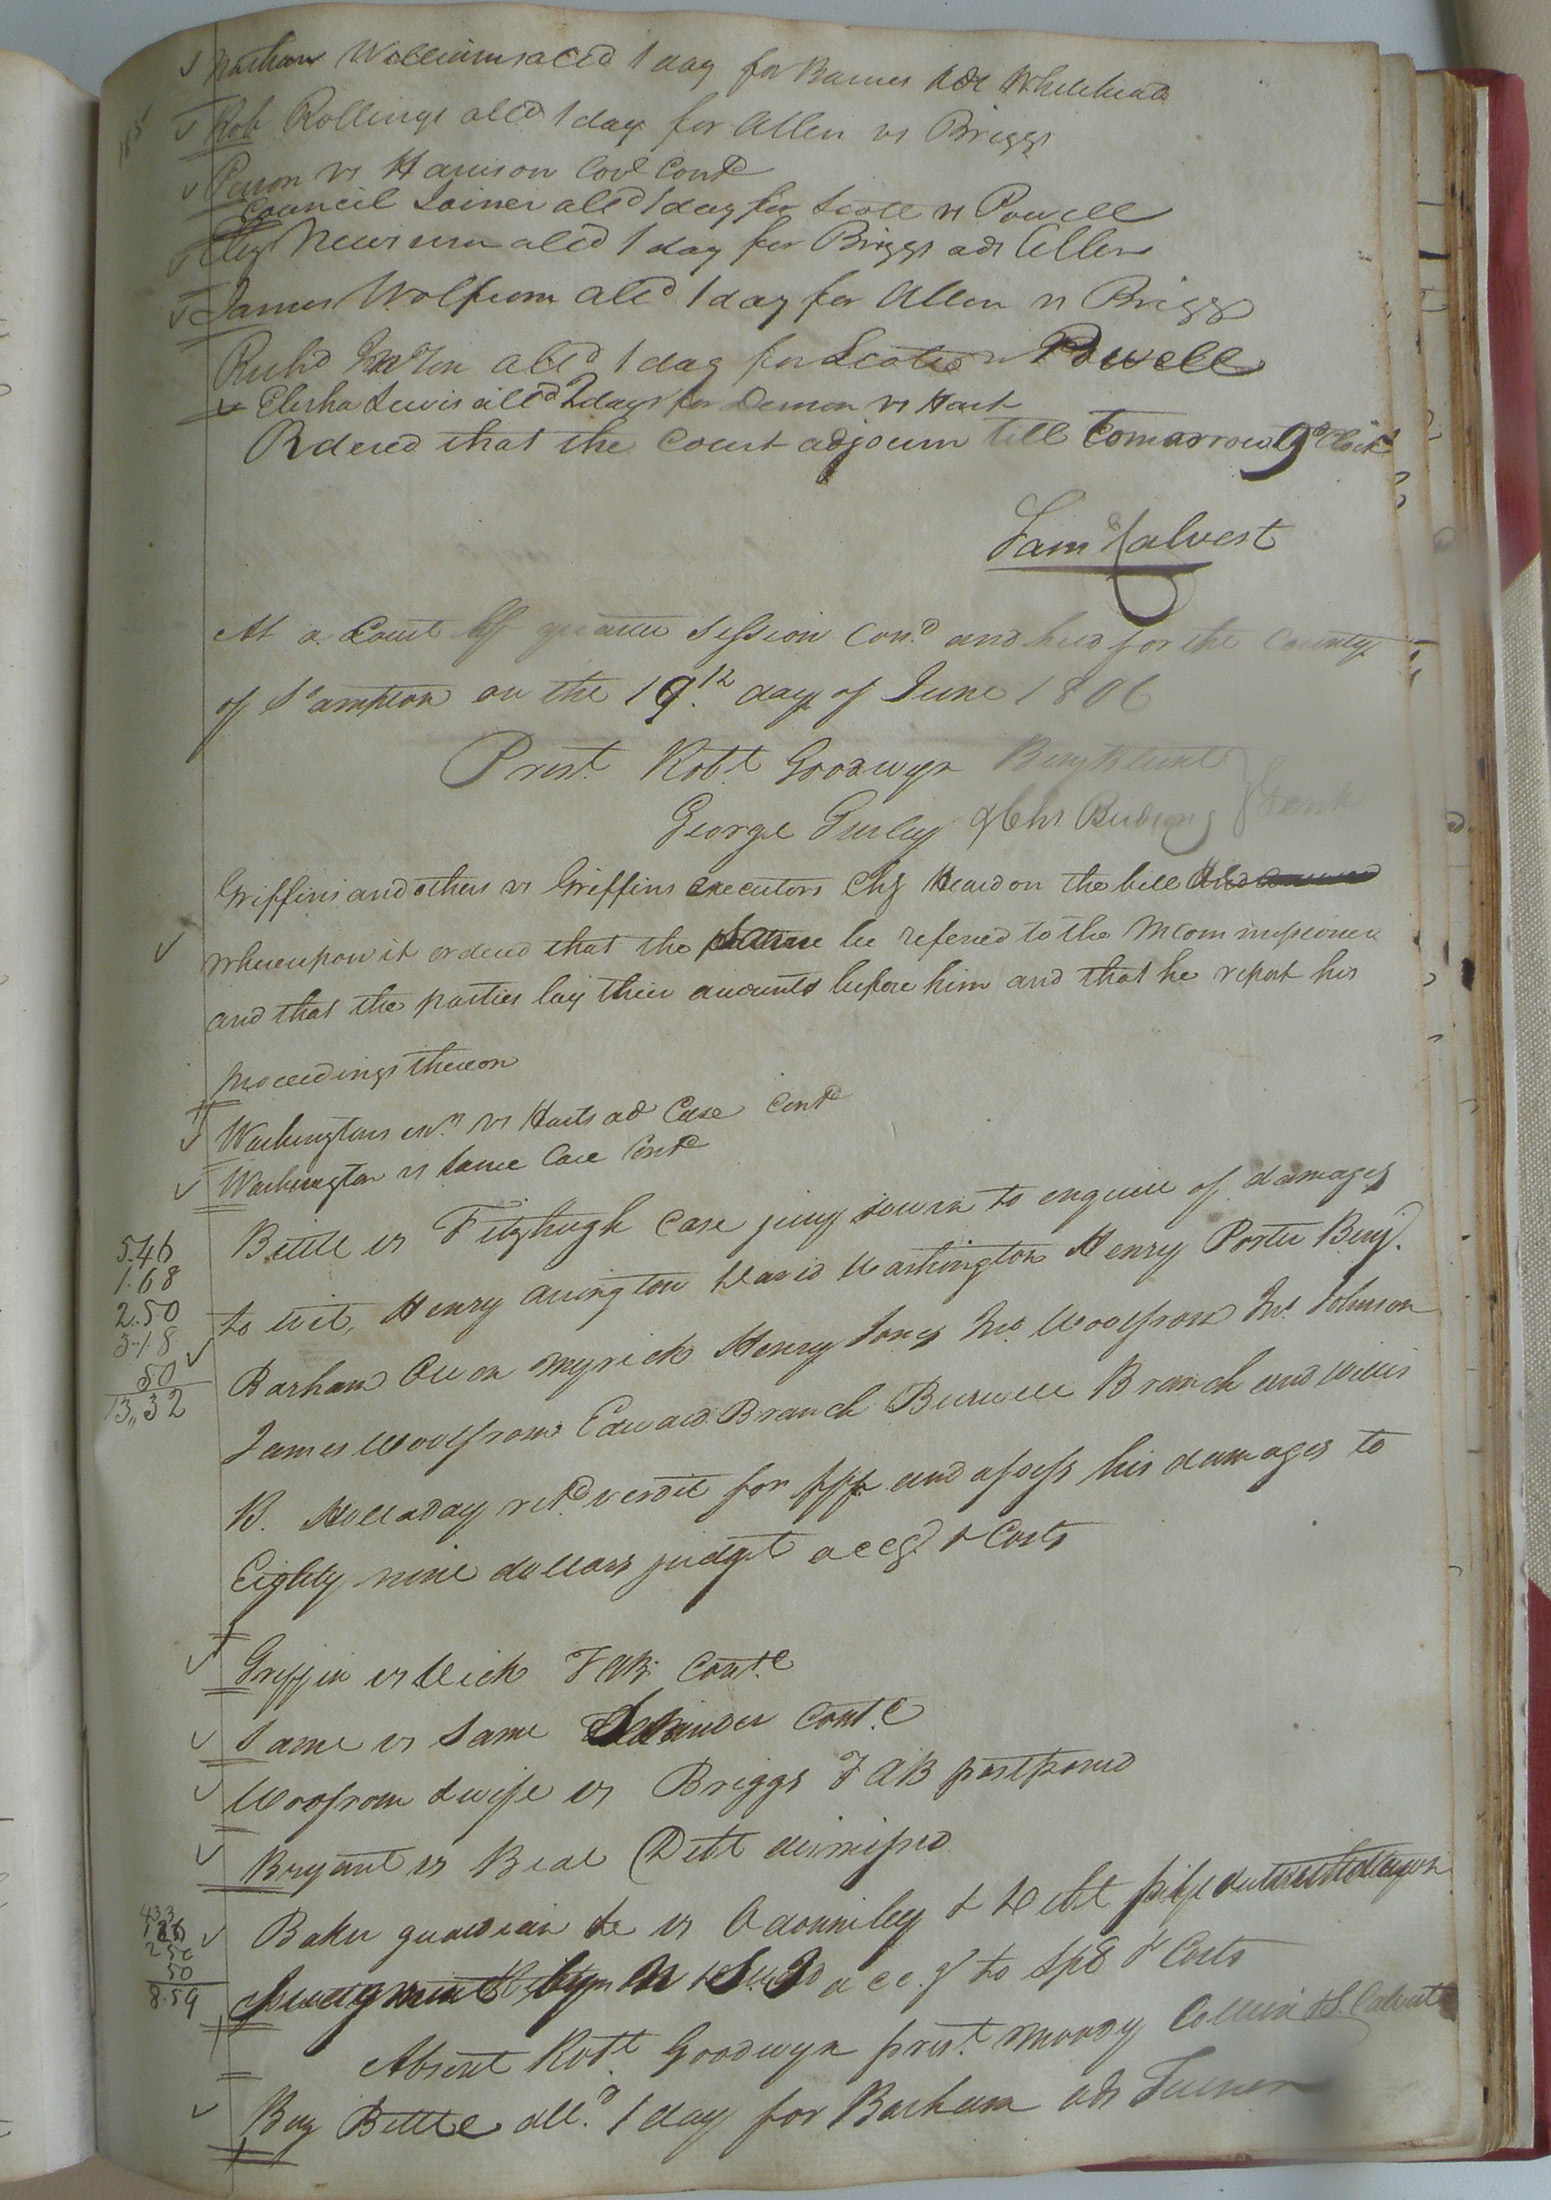 Nathan Williams alld 1 day for Barnes ads Whitehead
Rob Rollings alld 1 day for Allen vs Briggs
Person vs Harrison Covt Contd
Council Joiner alld 1 day for Scott vs Powell
Newsum alld 1 day for Briggs ads Allen
James Wolfrom alld 1 day for Allen vs Briggs
Richd alld 1 day for vs Powell
Elisha Lewis alld 2 days for Demon vs Hart
Rdered that the Court adjourn till Tomorrow 9 oClock
Saml Calvert
At a Court of quarter Session Cond and held for the County
of So ampton on the 19th day of June 1806
Prest Robt Goodwyn Benj Blunt
George Gurley & Chs Gent
Griffins and others vs Griffins executors Chy Heard on the bill
whereupon it ordered that the same be refered to the Mcommissioner
and that the parties lay their accounts before him and that he report his
proceedings thereon
Washingtons exr vs Harts ad Case Contd
Washington vs Same Case Contd
Bittle vs Fitzhugh Case jury sworn to enquire of damages
5.46
1.68
2.50
3.18
50
13,,32
to wit, Henry Arrington David Washington Henry Porter Benj.
Barham Owen Myrick Henry Jones Jno Woolfrom Jno Johnson
James Woolfrom Edward Branch Burwell Branch and Willis
B. Holladay retd verdit for plf and assess his damages to
Eighty nine dollars judgt accg & Costs
Griffin vs Vick TAB Contd
Same vs Same Slander Contd
Woolfrom & wife vs Briggs TAB postponed
Bryant vs Beal Debt dismissed
4.33
2 50
50
8.59
Baker guardian &c vs Adonniley & Debt
accg to Spe & Costs
Absent Robt Goodwyn prest. Moody Collier & S. Calvert
Benj Bittle alld 1 day for Barham ads Turner